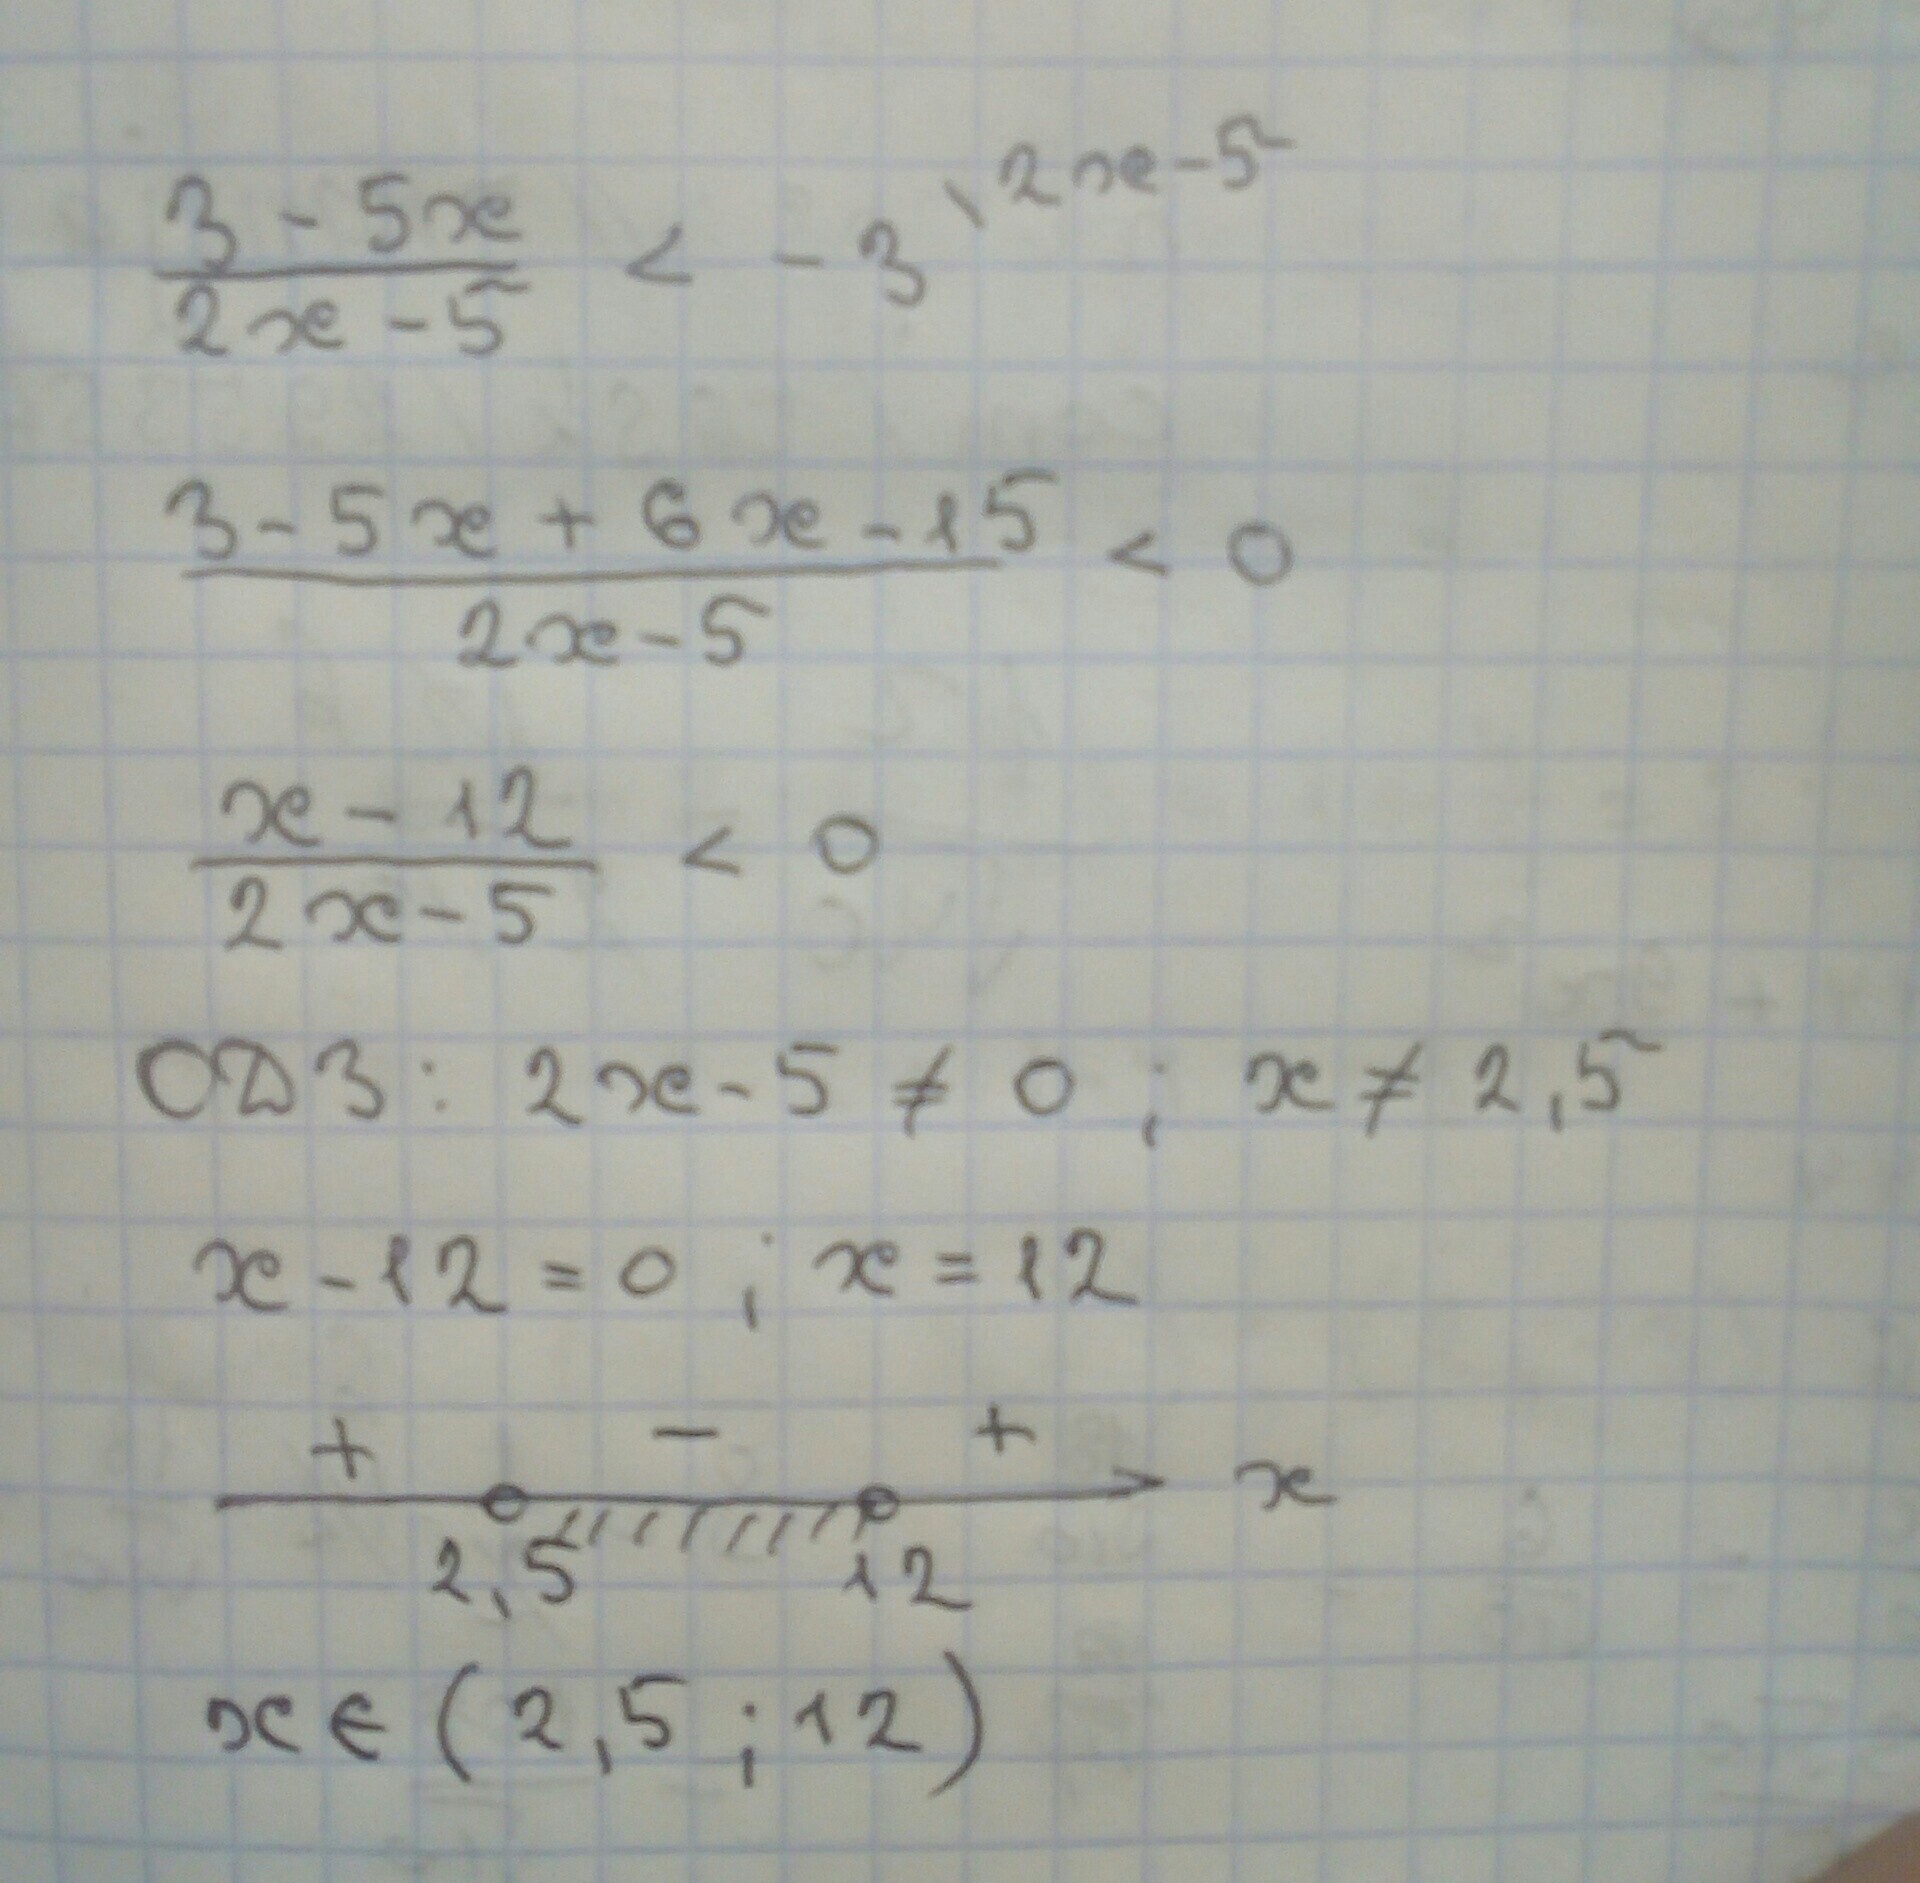 3 - 5x / 2x - 5 < - 3 \ 2x - 5
3 - 5x + 6x - 15 / 2x - 5 < 0
x - 12 / 2x - 5 < 0
ОДЗ: 2x - 5 ≠ 0 ; x ≠ 2,5
x - 12 = 0 ; x = 12
+ - +
x
2,5 12
x ∈ (2,5 ; 12)